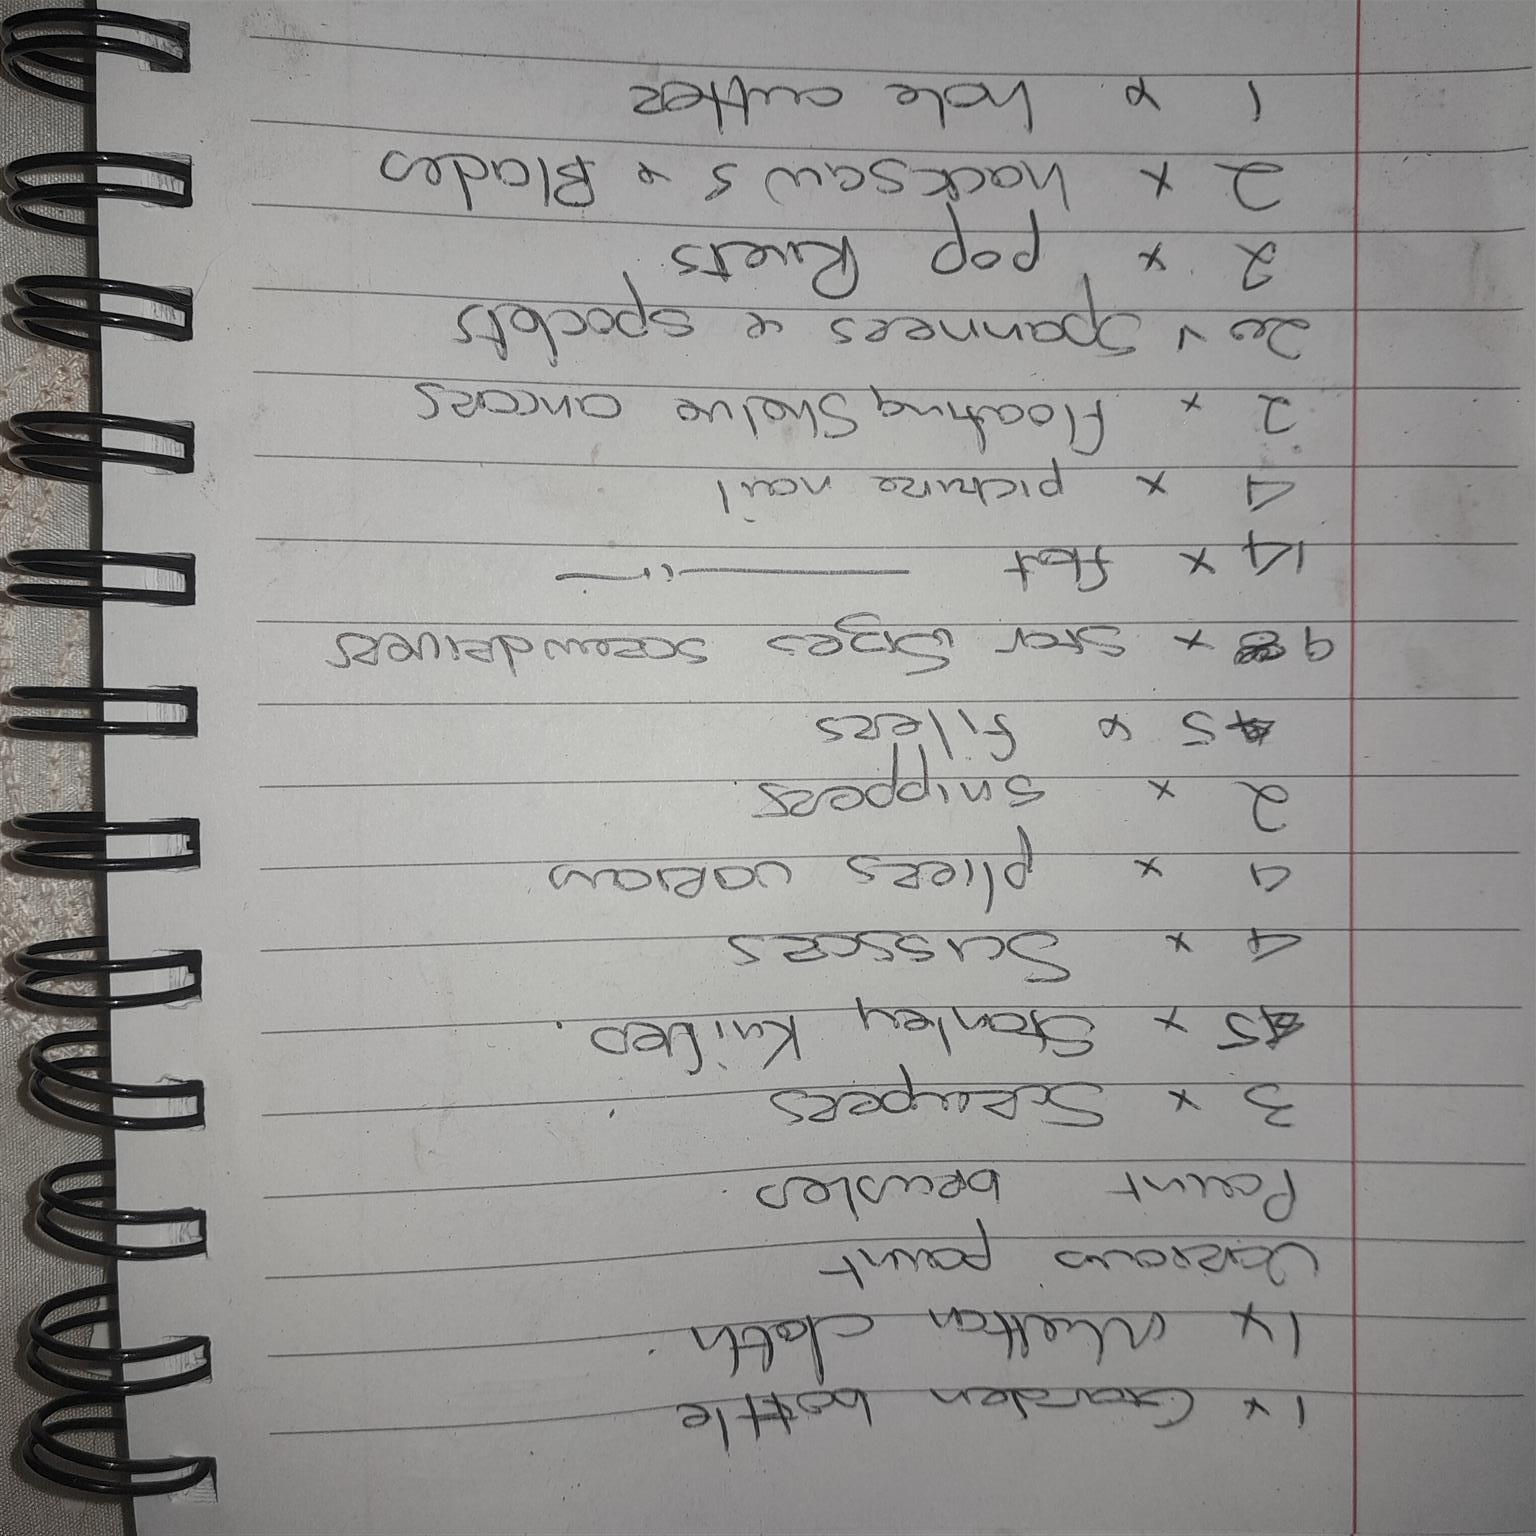 1 x Garden bottle
1 x cloth.
Various paint
Paint brushes
3 x Scrapers
5 x Stanley Knifes.
4 x Scissors
4 x pliers various
2 x snippers
5 x filers
9 x Star Sizes screwdrivers
14 x flat —— " ——
4 x picture nail
2 x Floating Shelve ancors
20 x Spanners & spockets
2 x pop Rivets
2 x hacksaws & Blades
1 x hole cutter